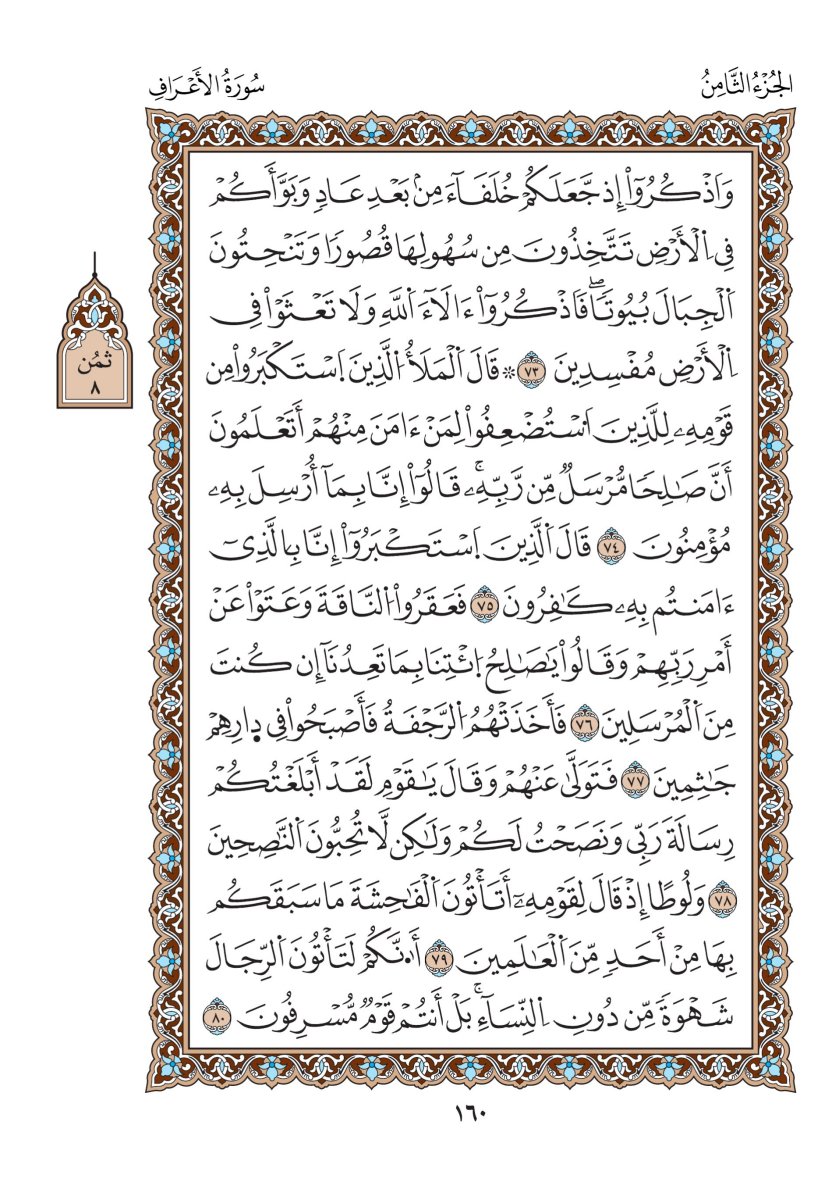 الجُزْءُ الثَّامِنُ
سُورَةُ الأَعْرَافِ
وَاَذْكُرُوٓاْ إِذ جَّعَلَكُمْ خُلَفَآءَ مِنۢ بَعْدِ عَادٖ وَبَوَّأَكُمْ
فِے اِ۬لْأَرْضِ تَتَّخِذُونَ مِن سُهُولِهَا قُصُورٗا وَتَنْحِتُونَ
اَ۬لْجِبَالَ بُيُوتٗاۖ فَاَذْكُرُوٓاْ ءَالَآءَ اَ۬للَّهِ وَلَا تَعْثَوْاْ فِے
اِ۬لْأَرْضِ مُفْسِدِينَ ٧٣ ۞ قَالَ اَ۬لْمَلَأُ اُ۬لَّذِينَ اَ۪سْتَكْبَرُواْ مِن
قَوْمِهِۦ لِلَّذِينَ اَ۟سْتُضْعِفُواْ لِمَنْ ءَامَنَ مِنْهُمْ أَتَعْلَمُونَ
أَنَّ صَٰلِحٗا مُّرْسَلٞ مِّن رَّبِّهِۦۚ قَالُوٓاْ إِنَّا بِمَآ أُرْسِلَ بِهِۦ
مُؤْمِنُونَ ٧٤ قَالَ اَ۬لَّذِينَ اَ۪سْتَكْبَرُوٓاْ إِنَّا بِالَّذِےٓ
ءَامَنتُم بِهِۦ كَٰفِرُونَ ٧٥ فَعَقَرُواْ اُ۬لنَّاقَةَ وَعَتَوْاْ عَنْ
أَمْرِ رَبِّهِمْ وَقَالُواْ يَٰصَٰلِحُ اُ۪ئْتِنَا بِمَا تَعِدُنَآ إِن كُنتَ
مِنَ اَ۬لْمُرْسَلِينَ ٧٦ فَأَخَذَتْهُمُ اُ۬لرَّجْفَةُ فَأَصْبَحُواْ فِے دِارِهِمْ
جَٰثِمِينَ ٧٧ فَتَوَلَّىٰ عَنْهُمْ وَقَالَ يَٰقَوْمِ لَقَدْ أَبْلَغْتُكُمْ
رِسَالَةَ رَبِّے وَنَصَحْتُ لَكُمْ وَلَٰكِن لَّا تُحِبُّونَ اَ۬لنَّٰصِحِينَ
٧٨ وَلُوطًا إِذْ قَالَ لِقَوْمِهِۦٓ أَتَأْتُونَ اَ۬لْفَٰحِشَةَ مَا سَبَقَكُم
بِهَا مِنْ أَحَدٖ مِّنَ اَ۬لْعَٰلَمِينَ ٧٩ أَٰ۟نَّكُمْ لَتَأْتُونَ اَ۬لرِّجَالَ
شَهْوَةٗ مِّن دُونِ اِ۬لنِّسَآءِۚ بَلْ أَنتُمْ قَوْمٞ مُّسْرِفُونَ ٨٠
ثُمُن
٨
١٦٠